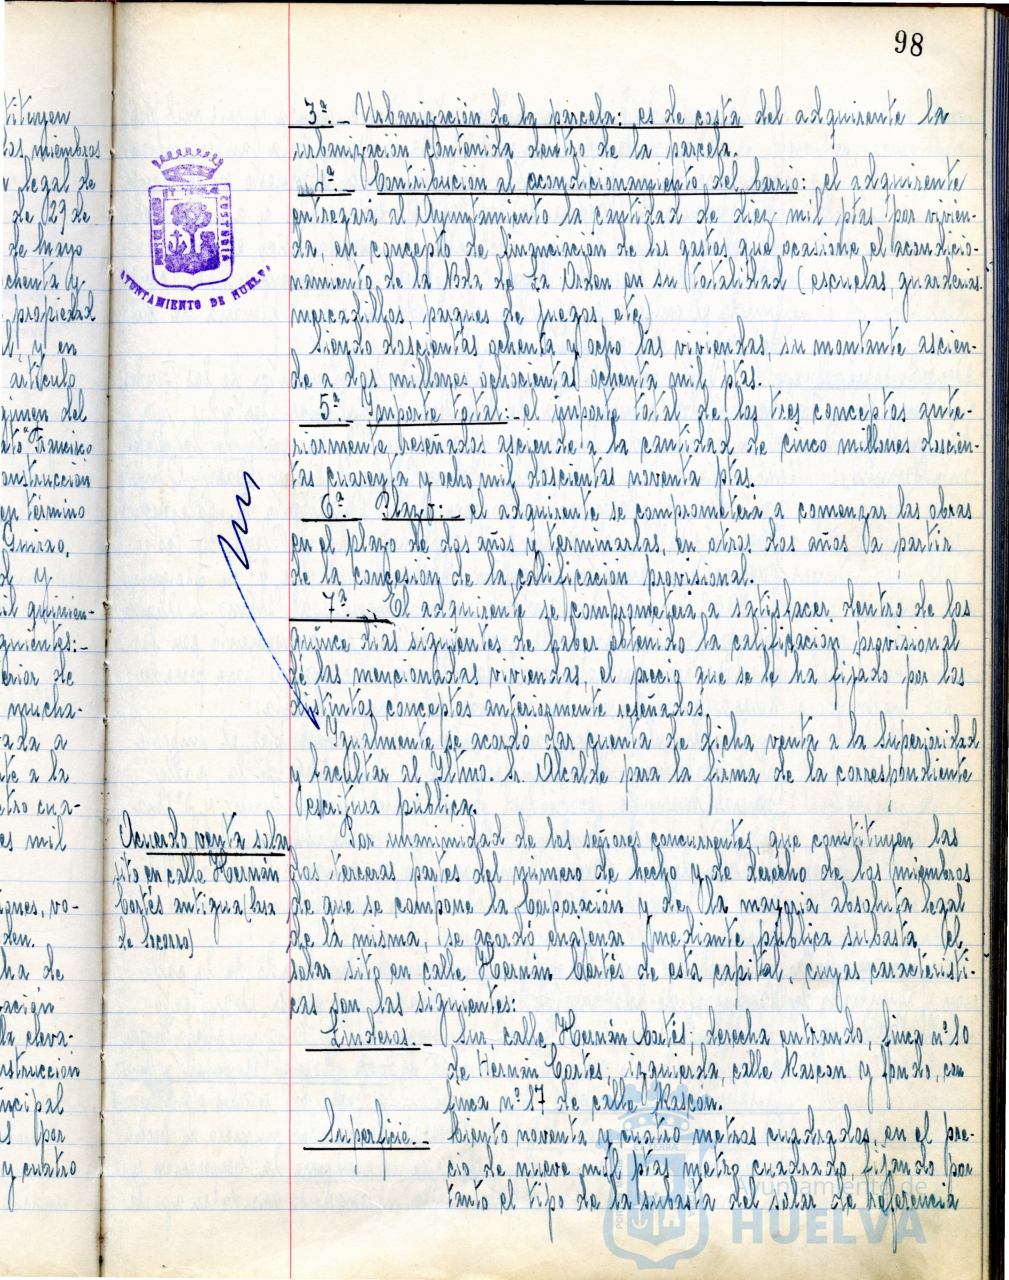 98
3ª.- Urbanización de la parcela: es de costa del adquirente la
urbanización contenida dentro de la parcela.
4ª.- Contribución al acondicionamiento del barrio: el adquirente
entregará al Ayuntamiento la cantidad de diez mil ptas por vivien-
da, en concepto de financiación de los gastos que ocasione el acondicio-
namiento de la Bda de La Orden en su totalidad (escuelas, guarderias
mercadillos, parques de juegos, etc)
Siendo doscientas ochenta y ocho las viviendas, su montante ascien-
de a dos millones ochocientas ochenta mil ptas.
5ª Importe total:- el importe total de los tres conceptos ante-
riormente reseñados asciende a la cantidad de cinco millones doscien-
tas cuarenta y ocho mil doscientas noventa ptas.
6ª Plazo:- el adquirente se comprometerá a comenzar las obras
en el plazo de dos años y terminarlas, en otros dos años a partir
de la concesión de la calificación provisional.
7ª.- El adquirente se comprometerá a satisfacer dentro de los
quince dias siguientes de haber obtenido la calificación provisional
de las mencionadas viviendas, el precio que se le ha fijado por los
distintos conceptos anteriormente reseñados.
Igualmente se acordó dar cuenta de dicha venta a la superioridad
y facultar al Iltmo. Sr Alcalde para la firma de la correspondiente
escritura pública.
Acuerdo venta solar
sito en calle Hernán
Cortés antigua (Casa
de Socorro)
Por unanimidad de los señores concurrentes que constituyen las
dos terceras partes del número de hecho y de derecho de los miembros
de que se compone la Corporación y de la mayoria absoluta legal
de la misma, se acordó enajenar mediante pública subasta el
solar sito en calle Hernán Cortés de esta capital, cuyas caracteristi-
cas son las siguientes:
Linderos.- Sur, calle Hernán Cortés; derecha entrando, finca nº 10
de Hernán Cortes; izquierda, calle Rascon y fondo, con
finca nº 17 de calle Rascon.
Superficie.- Ciento noventa y cuatro metros cuadrados, en el pre-
cio de nueve mil ptas metro cuadrado, fijando por
tanto el tipo de la subasta del solar de referencia
tituyen
los miembros
legal de
de (29 de
de Mayo
chenta y
propiedad
y en
artículo
gimen del
Francisco
onstrucción
en término
Guirao,
y
il quinien-
guientes:-
erior de
mucha-
ada a
te a la
tro cua-
es mil
ques, vo-
den.
ha de
ación
la eleva-
nstrucción
ncipal
por
y cuatro
PORTUS MARIS ET TERRAE CUSTODIA
AYUNTAMIENTO DE HUELVA
Ayuntamiento de
HUELVA